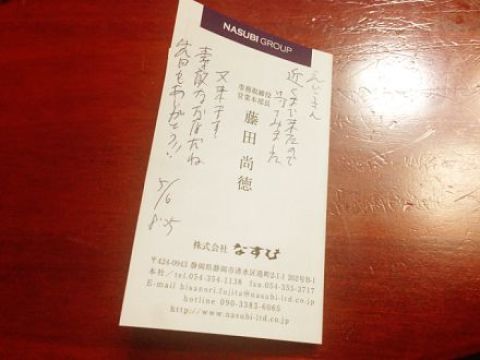 NASUBI GROUP
えびさん
近くまで来たので
寄ってみました
専務取締役
営業本部長
藤田 尚徳
又来ます!
素敵なお店だね
先日もありがとう!!
5/6
8:25
株式会社 なすび
〒424-0943 静岡県静岡市清水区港町2-1-1 302号B-1
本社/tel.054-354-1138 fax.054-353-3717
E-mail hisanori.fujita@nasubi-ltd.co.jp
hotline 090-3385-6065
http://www.nasubi-ltd.co.jp